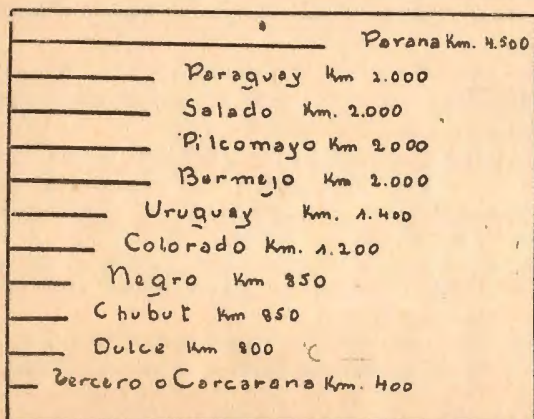 Parana Km. 4.500
Paraguay Km 2.000
Salado Km. 2.000
Pilcomayo Km 2000
Bermejo Km 2.000
Uruguay Km. 1.400
Colorado Km. 1.200
Negro Km 850
Chubut Km 850
Dulce Km 800
Tercero o Carcarana Km. 400